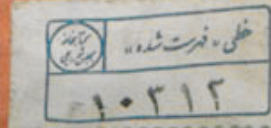 خطی « فهرست شده »
کتابخانه
۱۰۳۱۲